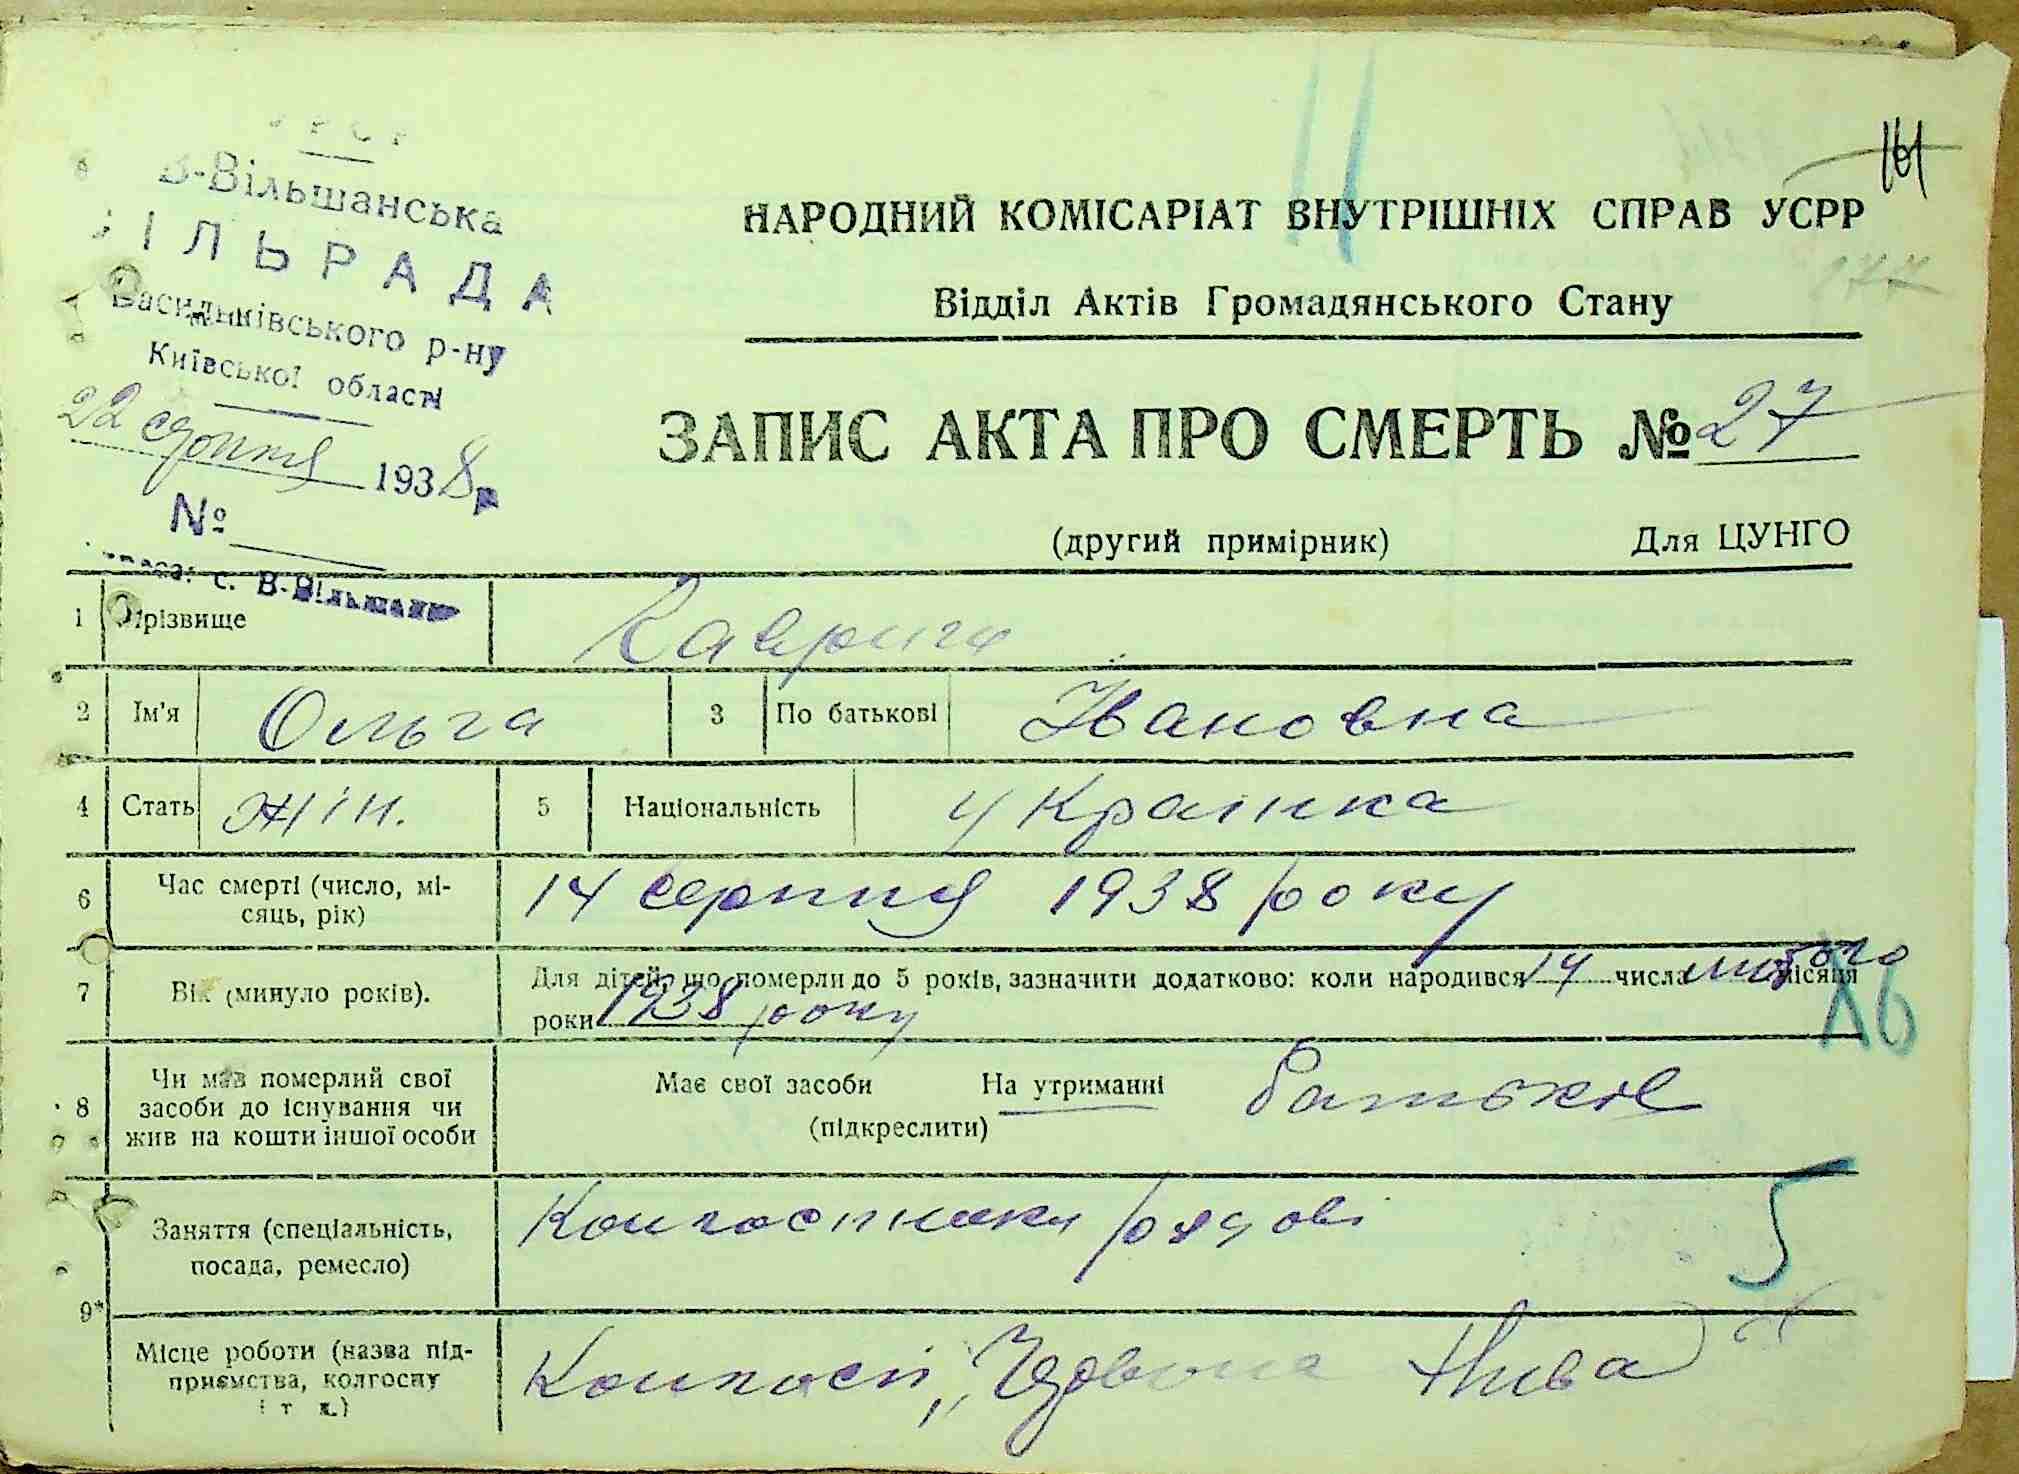 УРСР
В-Вільшанська
СІЛЬРАДА
Васильківського р-ну
Київської області
22 серпня 1938 р.
№
с. В-Вільшанка
161
177
НАРОДНИЙ КОМІСАРІАТ ВНУТРІШНІХ СПРАВ УСРР
Відділ Актів Громадянського Стану
ЗАПИС АКТА ПРО СМЕРТЬ № 27
(другий примірник) Для ЦУНГО
1 Прізвище
2 Ім'я Ольга 3 По батькові Івановна
4 Стать жін. 5 Національність українка
6 Час смерті (число, мі-
сяць, рік) 14 серпня 1938 року
7 Вік (минуло років). Для дітей, що померли до 5 років, зазначити додатково: коли народився 14 числа лютого місяця
роки 1938 року
8 Чи мав померлий свої
засоби до існування чи
жив на кошти іншої особи
Має свої засоби На утриманні батьків
(підкреслити)
Заняття (спеціальність,
посада, ремесло) Колгоспники рядові
5
9*
Місце роботи (назва під-
приємства, колгоспу
і т д.) Колгосп „Червона Нива"